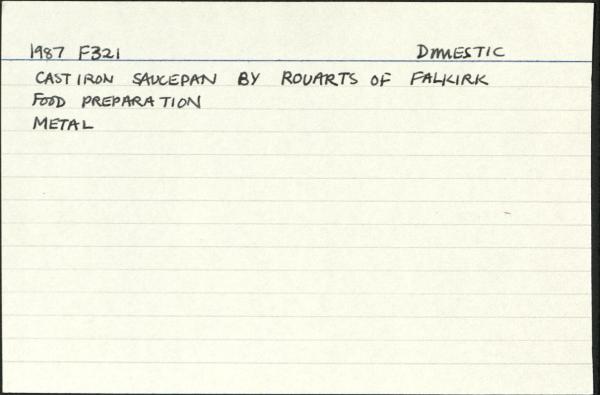 1987 F321 DOMESTIC
CAST IRON SAUCEPAN BY ROUARTS OF FALKIRK
FOOD PREPARATION
METAL